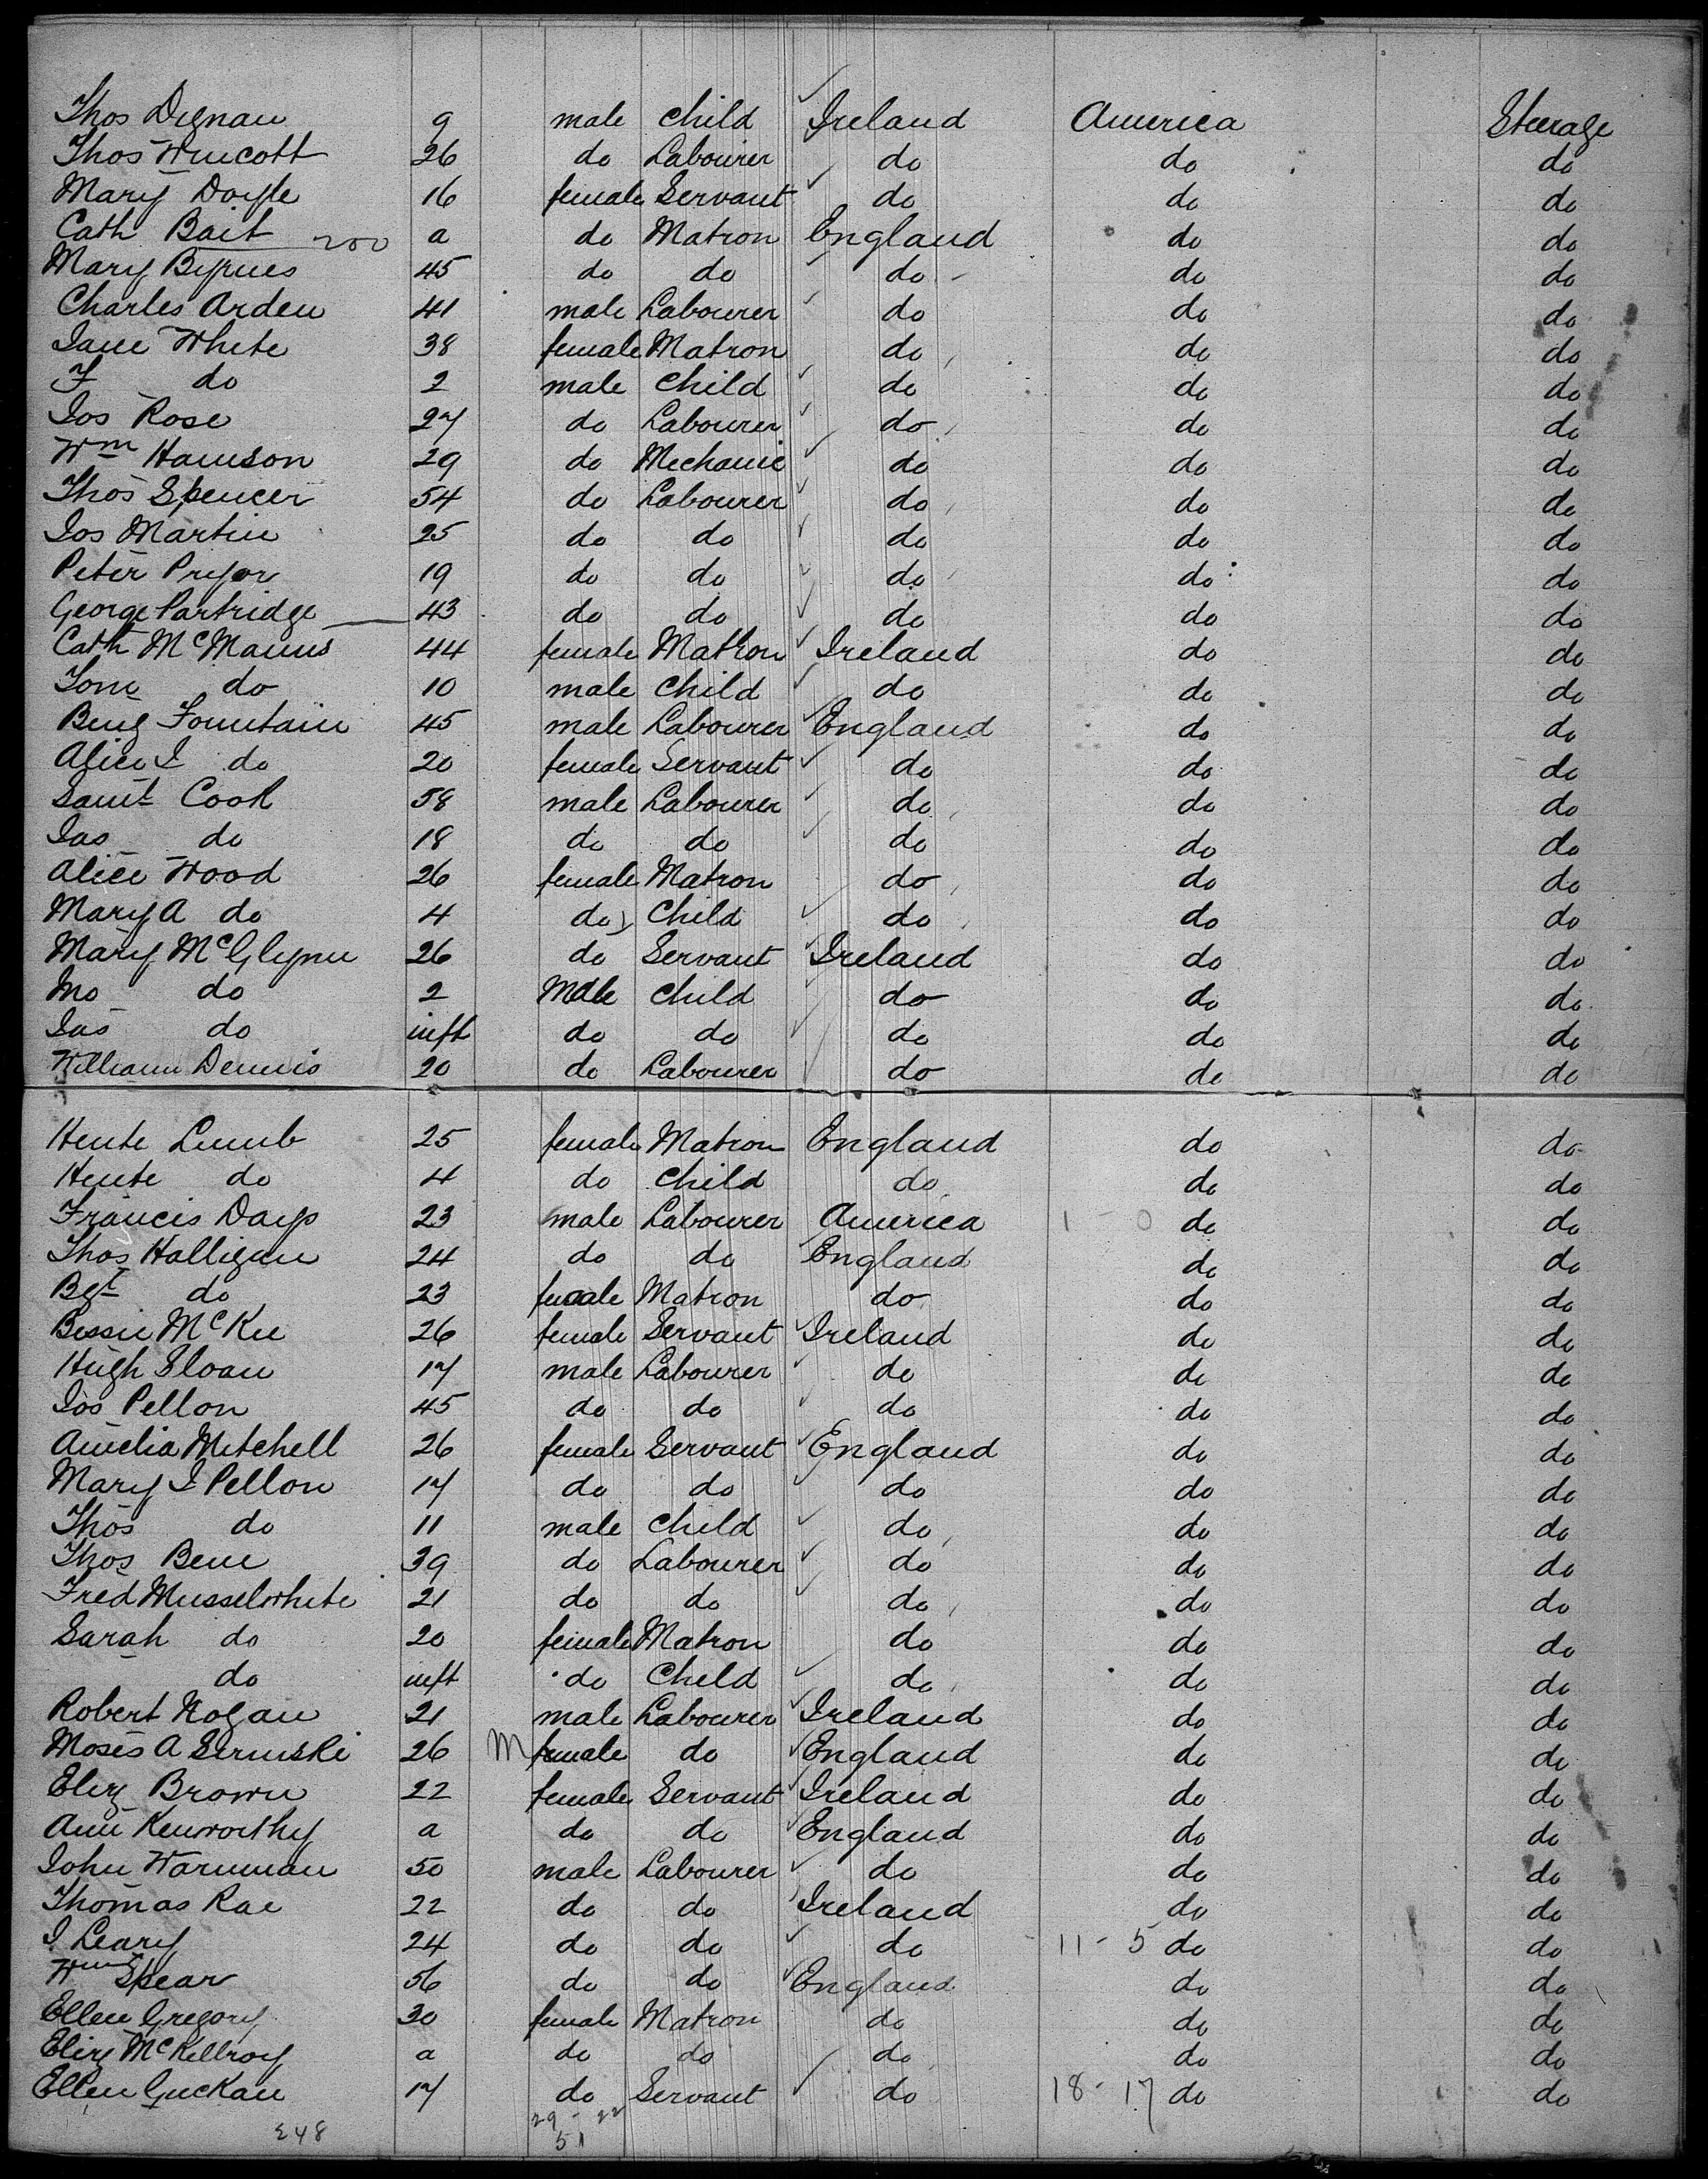 Thos Dignan 9 male child Ireland America Steerage
Thos Wincott 26 do Labourer do do do
Mary Doyle 16 female Servant do do do
Cath Bait 200 a do Matron England do do
Mary Byrnes 45 do do do do do
Charles Arden 41 male Labourer do do do
Jane White 38 female Matron do do do
F do 2 male child do do do
Jos Rose 27 do Labourer do do do
Wm Hamson 29 do Mechanic do do do
Thos Spencer 54 do Labourer do do do
Jos Martin 25 do do do do do
Peter Pryor 19 do do do do do
George Partridge 43 do do do do do
Cath McManus 44 female Matron Ireland do do
do 10 male child do do do
Benj Fountain 45 male Labourer England do do
Alice J do 20 female Servant do do do
Saml Cook 58 male Labourer do do do
Jas do 18 do do do do do
Alice Wood 26 female Matron do do do
Mary A do 4 do Child do do do
Mary McGlynn 26 do Servant Ireland do do
Jno do 2 Male child do do do
Jas do inft do do do do do
William Dennis 20 do Labourer do do do
Hente Lumb 25 female Matron England do do
Hente do 4 do child do do do
Francis Days 23 male Labourer America 1 - 0 do do
Thos Halligan 24 do do England do do
Bgt do 23 female Matron do do do
Bessie McKee 26 female Servant Ireland do do
Hugh Sloan 17 male Labourer do do do
Jos Pellon 45 do do do do do
Amelia Mitchell 26 female Servant England do do
Mary J Pellon 17 do do do do do
Thos do 11 male child do do do
Thos Bene 39 do Labourer do do do
Fred Musselwhite 21 do do do do do
Sarah do 20 female Matron do do do
do inft do Child do do do
Robert Nogan 21 male Labourer Ireland do do
Moses A 26 M female do England do do
Eliz Brown 22 female Servant Ireland do do
Ann Kenworthy a do do England do do
John Warmman 50 male Labourer do do do
Thomas Rae 22 do do Ireland do do
J Leary 24 do do do 11 - 5 do do
Wm Spear 56 do do England do do
Ellen Gregory 30 female Matron do do do
Eliz McKellroy a do do do do do
Ellen Guckan 17 do Servant do 18 - 17 do do
248 29 - 22
51